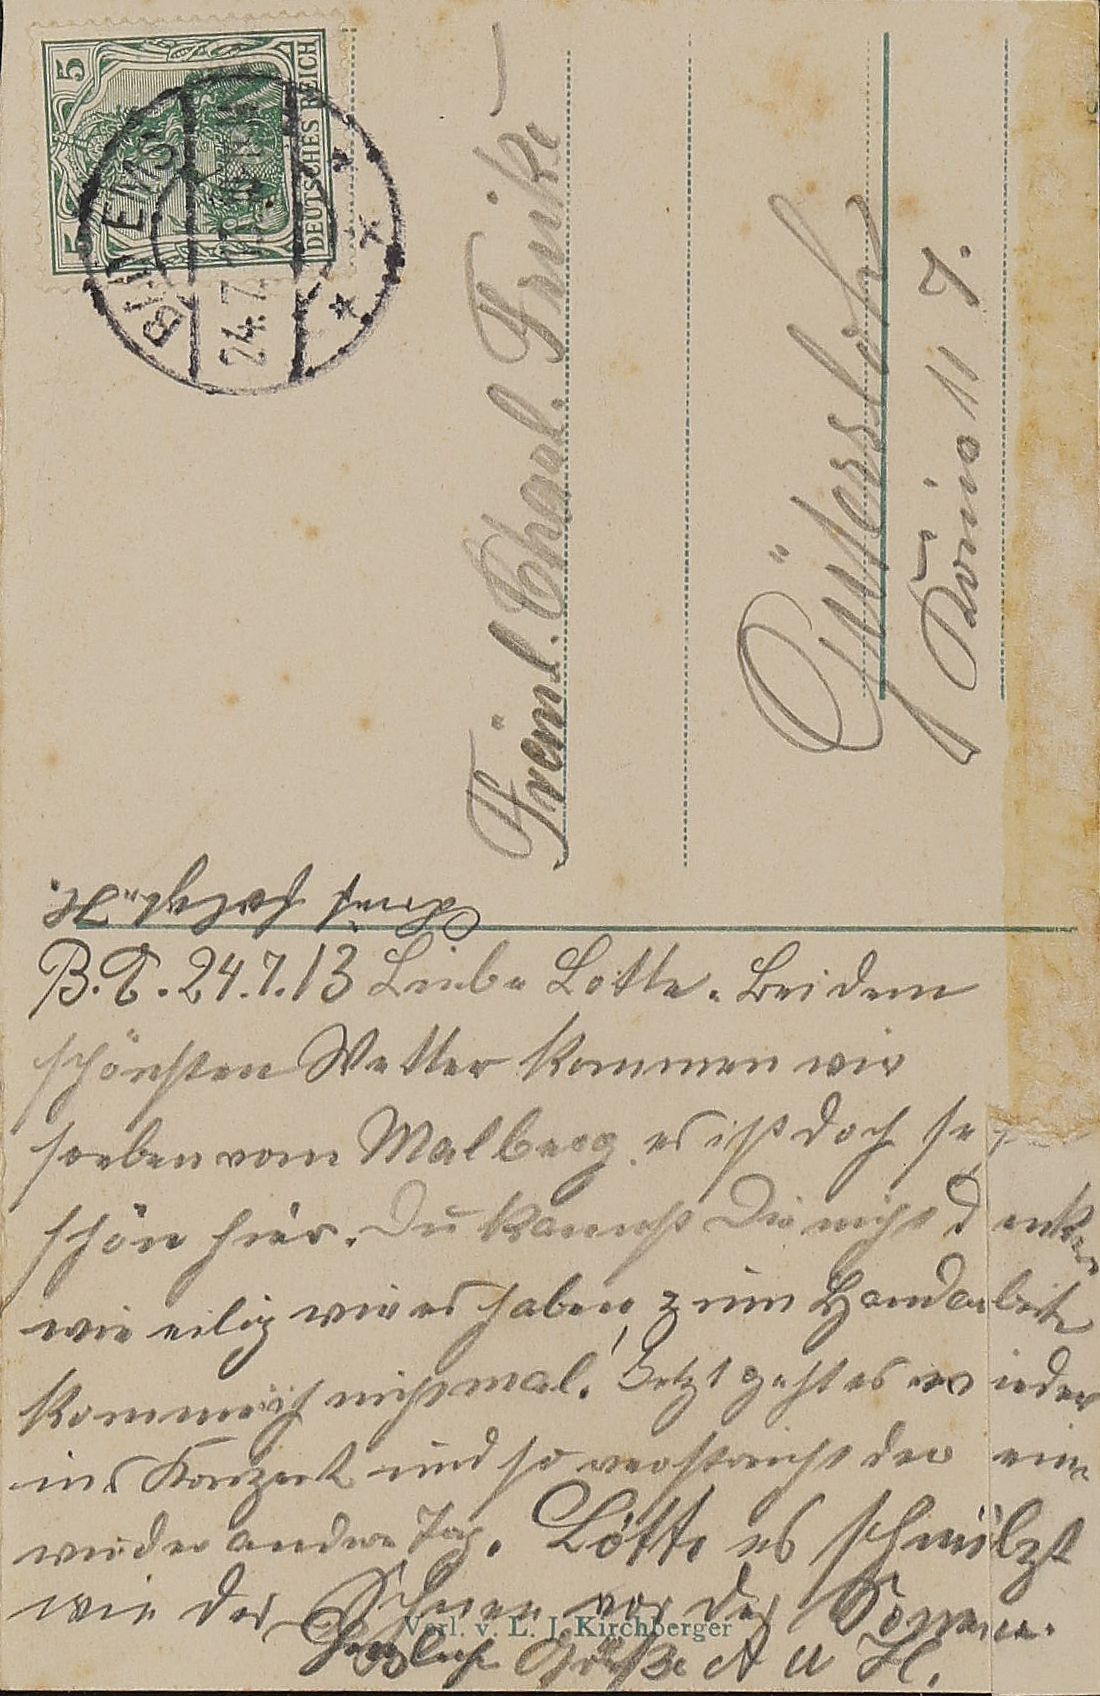 5
5
DEUTSCHES REICH
BAD EMS
24.7.13
Fräul.
Gütersloh
B. E. 24.7.13 Liebe Lotte. Bei dem
schönsten Wetter kommen wir
soeben vom Malberg. es ist doch
schön hier. Du kannst Dir nicht denken
wie eilig wir es haben, zum Handarbeit
komme ich nicht mal. Jetzt geht es wieder
ins Konzert und so verstreicht der ein
wie der andere Tag. Lotte es schmilzt
wie der Schnee vor der Sonne.
Herzliche Grüße A u H.
Verl. v. L. J. Kirchberger